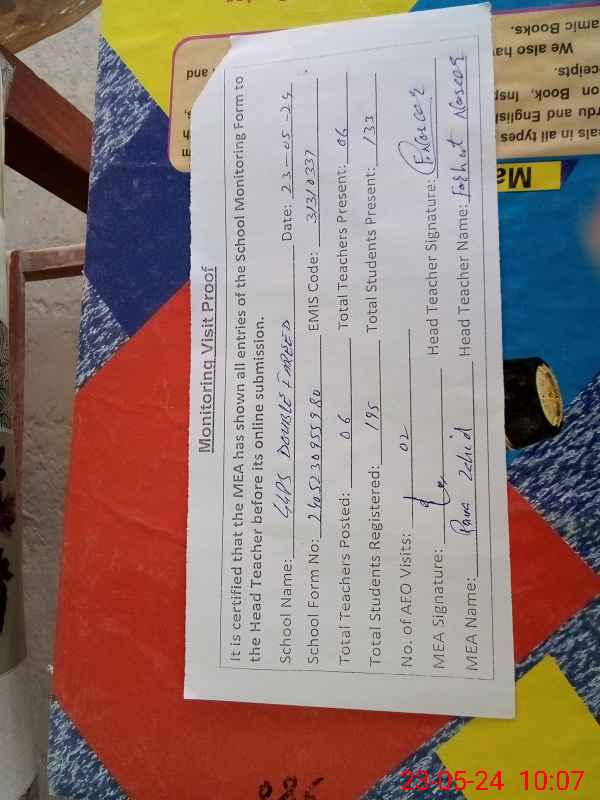 Monitoring Visit Proof
It is certified that the MEA has shown all entries of the School Monitoring Form to
the Head Teacher before its online submission.
School Name: GGPS DOUBLE FAREED Date: 23-05-24
School Form No: 2405230955980 EMIS Code: 31310337
Total Teachers Posted: 06 Total Teachers Present: 06
Total Students Registered: 195 Total Students Present: 133
No. of AEO Visits: 02
MEA Signature: Head Teacher Signature:
MEA Name: Rana Zahid Head Teacher Name: Farhat Naseer
amic Books.
We also ha
ceipts.
on Book, Insp
rdu and English
eals in all types
and
Ma
23-05-24 10:07